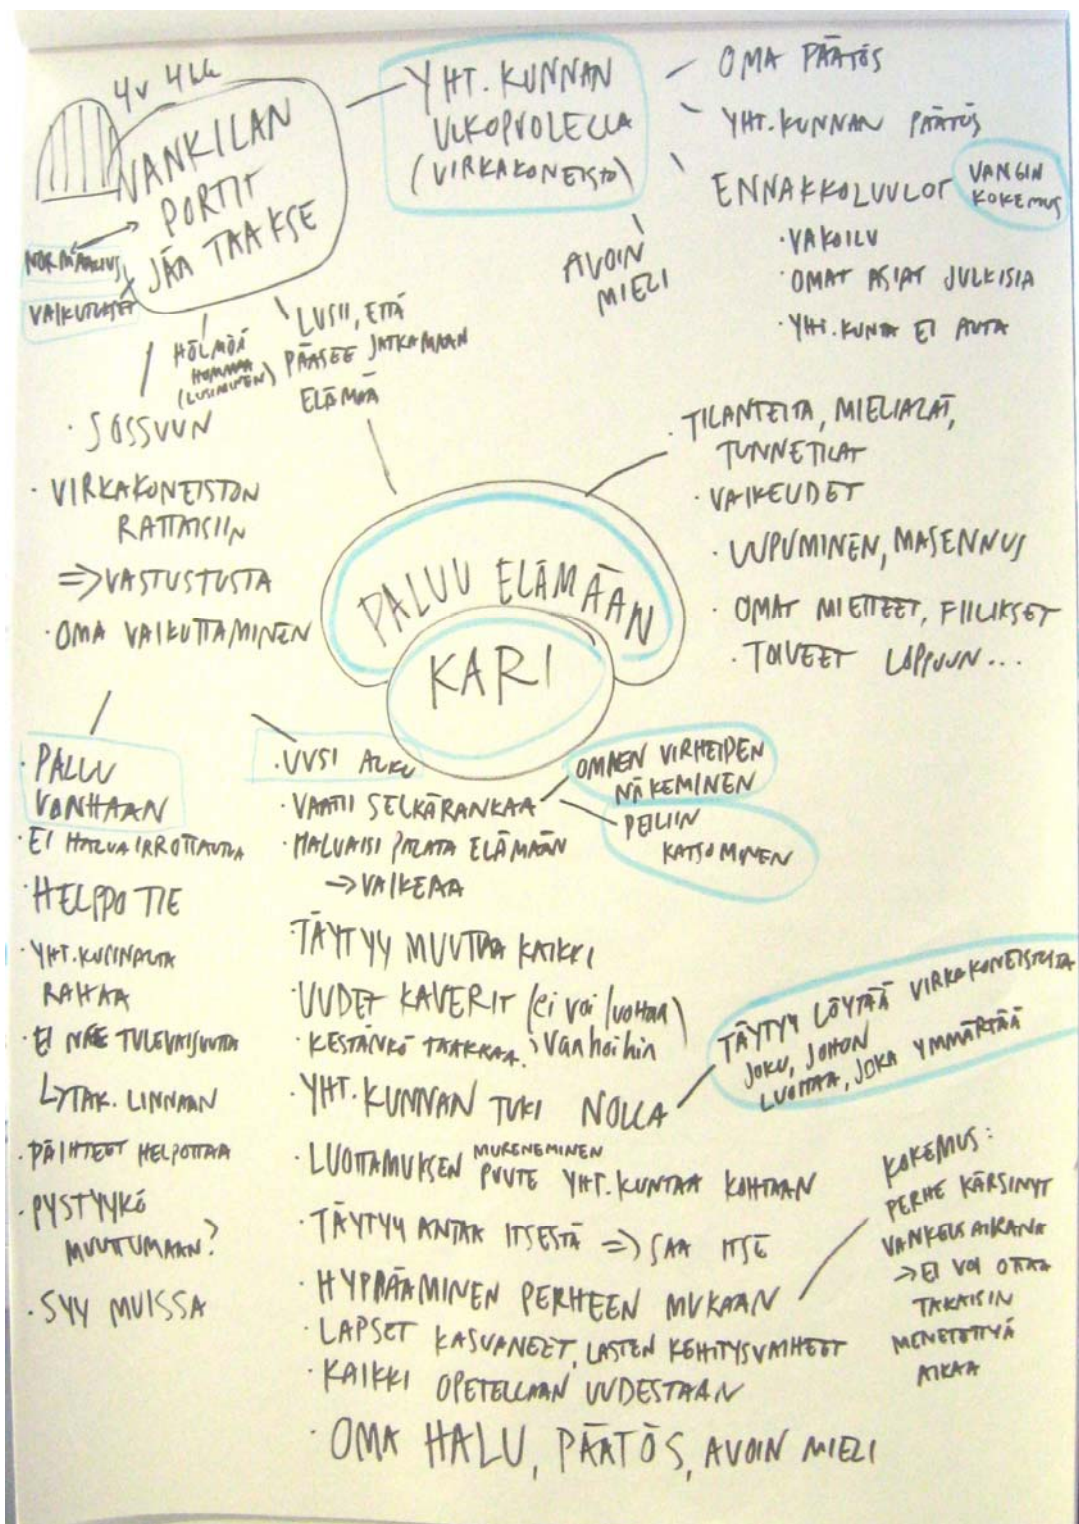 4v 4kk
VANKILAN
PORTIT
JÄÄ TAAKSE
NORMAALIUS,
VAIKUTUKSET
YHT. KUNNAN
ULKOPUOLELLA
(VIRKAKONEISTO)
OMA PÄÄTÖS
YHT. KUNNAN PÄÄTÖS
ENNAKKOLUULOT
VANGIN
KOKEMUS
• VAKOILU
• OMAT ASIAT JULKISIA
• YHT. KUNTA EI AUTA
AVOIN
MIELI
HÖLMÖÄ
HOMMAA
(LUSIMINEN)
LUSII, ETTÄ
PÄÄSEE JATKAMAAN
ELÄMÄÄ
• SOSSUUN
• VIRKAKONEISTON
RATTAISIIN
=> VASTUSTUSTA
• OMA VAIKUTTAMINEN
• TILANTEITA, MIELIALAT,
TUNNETILAT
• VAIKEUDET
• UUPUMINEN, MASENNUS
• OMAT MIETTEET, FIILIKSET
• TOIVEET LOPPUUN...
PALUU ELÄMÄÄN
KARI
• PALUU
VANHAAN
• EI HALUA IRROTTAUTUA
• HELPPO TIE
• YHT. KUNNALTA
RAHAA
• EI NÄE TULEVAISUUTTA
↳ TAK. LINNAAN
• PÄIHTEET HELPOTTAA
• PYSTYYKÖ
MUUTTUMAAN?
• SYY MUISSA
• UUSI ALKU
• VAATII SELKÄRANKAA
OMIEN VIRHEIDEN
NÄKEMINEN
PEILIIN
KATSOMINEN
• HALUAISI PALATA ELÄMÄÄN
-> VAIKEAA
• TÄYTYY MUUTTAA KAIKKI
• UUDET KAVERIT (ei voi luottaa
vanhoihin)
• KESTÄNKÖ TAAKKAA?
• YHT. KUNNAN TUKI NOLLA
TÄYTYY LÖYTÄÄ VIRKAKONEISTOSTA
JOKU, JOHON
LUOTTAA, JOKA YMMÄRTÄÄ
• LUOTTAMUKSEN MURENEMINEN
PUUTE YHT. KUNTAA KOHTAAN
• TÄYTYY ANTAA ITSESTÄ => SAA ITSE
• HYPPÄÄMINEN PERHEEN MUKAAN
KOKEMUS:
PERHE KÄRSINYT
VANKEUSAIKANA
-> EI VOI OTTAA
TAKAISIN
MENETETTYÄ
AIKAA
• LAPSET KASVANEET, LASTEN KEHITYSVAIHEET
• KAIKKI OPETELLAAN UUDESTAAN
• OMA HALU, PÄÄTÖS, AVOIN MIELI